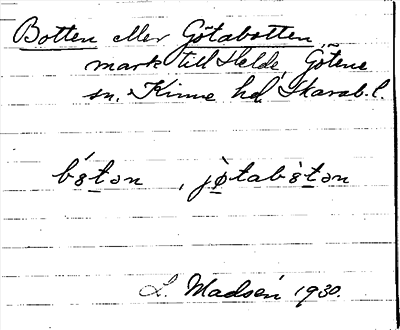 Botten eller Götabotten,
mark till Helde, Götene
sn, Kinne hd, Skarab. l.
bótən , jø̀tabòtən
L. Madsén 1930.